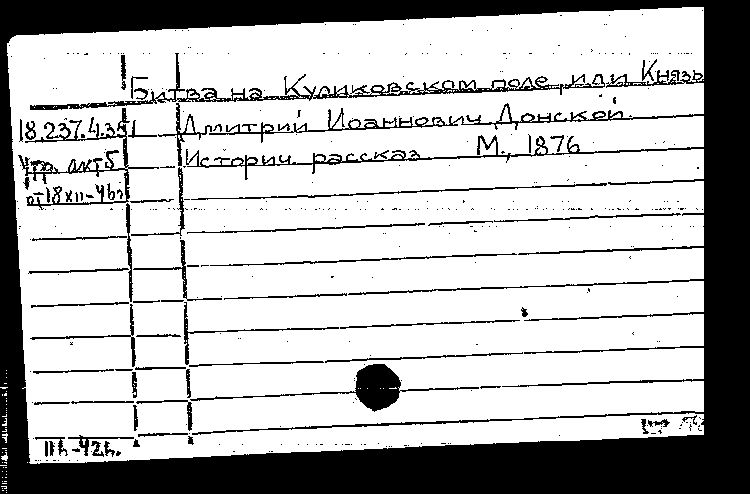 Битва на Куликовском поле, или Князь
18.237.4.351 Дмитрий Иоаннович Донской.
Утр. акт Б Историч. рассказ М., 1876
от 18 XII-46г